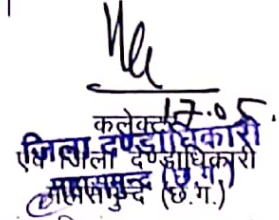 कलेक्टर 17.05.
जिला दण्डाधिकारी
एवं जिला दण्डाधिकारी
महासमुन्द (छ.ग.)
महासमुन्द (छ.ग.)